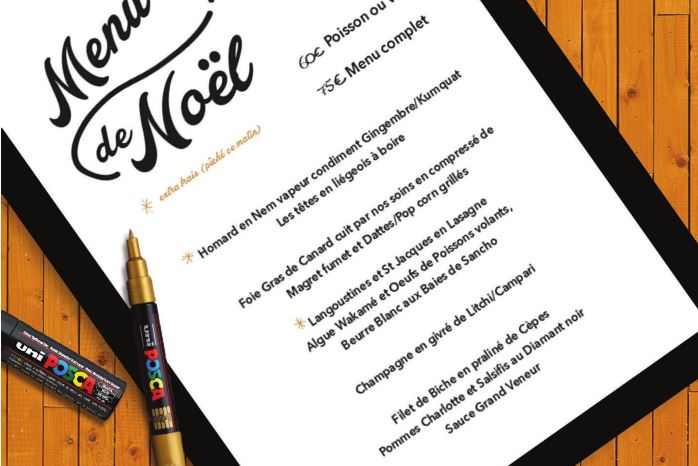 Menu
de Noël
60€ Poisson ou
75€ Menu complet
* extra frais (pêché ce matin)
* Homard en Nem vapeur condiment Gingembre/Kumquat
Les têtes en liégeois à boire
Foie Gras de Canard cuit par nos soins en compressé de
Magret fumet et Dattes/Pop corn grillés
* Langoustines et St Jacques en Lasagne
Algue Wakamé et Oeufs de Poissons volants,
Beurre Blanc aux Baies de Sancho
Champagne en givré de Litchi/Campari
Filet de Biche en praliné de Cèpes
Pommes Charlotte et Salsifis au Diamant noir
Sauce Grand Veneur
uni POSCA
uni POSCA